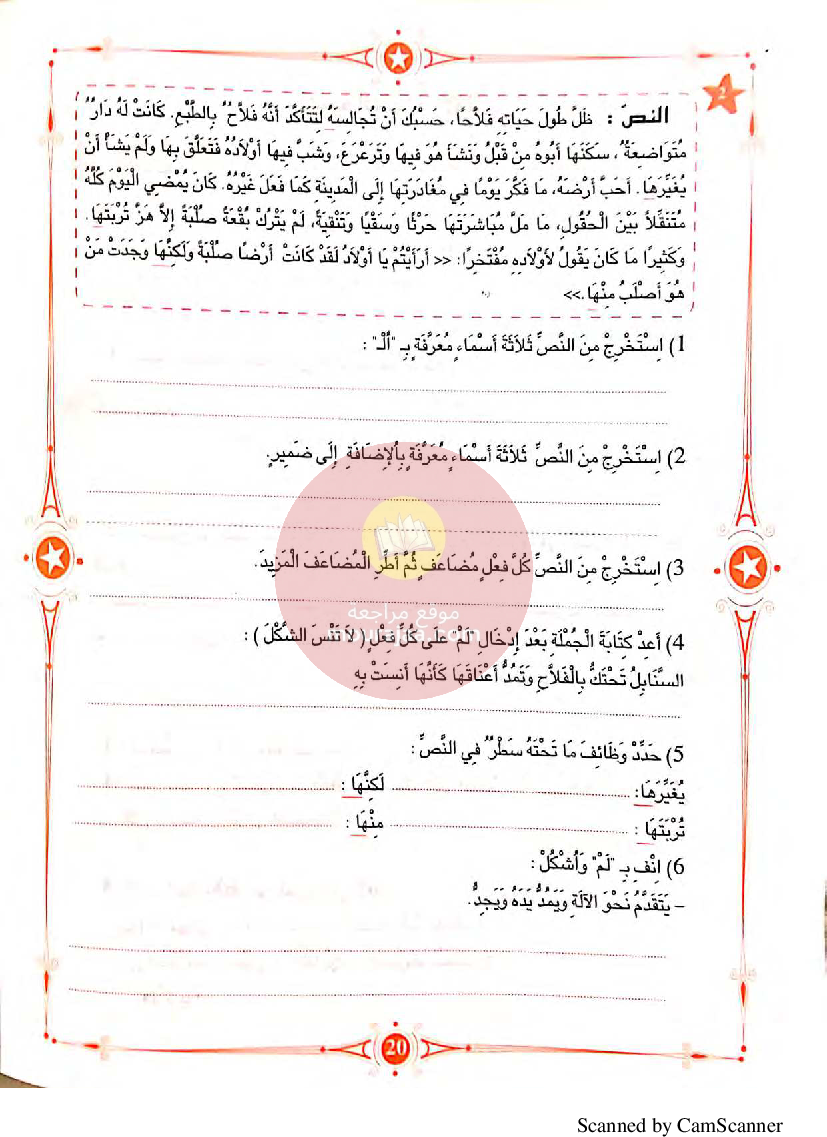 2
النصّ : ظَلَّ طُولَ حَيَاتِهِ فَلاَّحًا، حَسْبُكَ أَنْ تُجَالِسَهُ لِتَتَأَكَّدَ أَنَّهُ فَلاَّحٌ بِالطَّبْعِ. كَانَتْ لَهُ دَارٌ
مُتَوَاضِعَةٌ، سَكَنَهَا أَبُوهُ مِنْ قَبْلُ وَنَشَأَ هُوَ فِيهَا وَتَرَعْرَعَ، وَشَبَّ فِيهَا أَوْلاَدُهُ فَتَعَلَّقَ بِهَا وَلَمْ يَشَأْ أَنْ
يُغَيِّرَهَا. أَحَبَّ أَرْضَهُ، مَا فَكَّرَ يَوْمًا فِي مُغَادَرَتِهَا إِلَى المَدِينَةِ كَمَا فَعَلَ غَيْرُهُ. كَانَ يُمْضِي الْيَوْمَ كُلَّهُ
مُتَنَقِّلاً بَيْنَ الْحُقُولِ، مَا مَلَّ مُبَاشَرَتَهَا حَرْثًا وَسَقْيًا وَتَنْقِيَةً، لَمْ يَتْرُكْ بُقْعَةً صُلْبَةً إِلاَّ هَزَّ تُرْبَتَهَا.
وَكَثِيرًا مَا كَانَ يَقُولُ لأَوْلاَدِهِ مُفْتَخِرًا: << أَرَأَيْتُمْ يَا أَوْلاَدُ لَقَدْ كَانَتْ أَرْضًا صُلْبَةً وَلَكِنَّهَا وَجَدَتْ مَنْ
هُوَ أَصْلَبُ مِنْهَا.>>
1) اِسْتَخْرِجْ مِنَ النَّصِّ ثَلاَثَةَ أَسْمَاءٍ مُعَرَّفَةٍ بِـ "اَلْـ" :
2) اِسْتَخْرِجْ مِنَ النَّصِّ ثَلاَثَةَ أَسْمَاءٍ مُعَرَّفَةٍ بِالإِضَافَةِ إِلَى ضَمِيرٍ.
3) اِسْتَخْرِجْ مِنَ النَّصِّ كُلَّ فِعْلٍ مُضَاعَفٍ ثُمَّ أَطِّرِ الْمُضَاعَفَ الْمَزِيدَ.
موقع مراجعة
4) أَعِدْ كِتَابَةَ الْجُمْلَةِ بَعْدَ إِدْخَالِ لَمْ عَلَى كُلِّ فِعْلٍ ( لاَ تَنْسَ الشَّكْلَ ) :
السَّنَابِلُ تَحْتَكُّ بِالْفَلاَّحِ وَتَمُدُّ أَعْنَاقَهَا كَأَنَّهَا أَنِسَتْ بِهِ
5) حَدِّدْ وَظَائِفَ مَا تَحْتَهُ سَطْرٌ فِي النَّصِّ :
يُغَيِّرَهَا: ........ لَكِنَّهَا : ........
تُرْبَتَهَا : ........ مِنْهَا : ........
6) اِنْفِ بِـ "لَمْ" وَاُشْكُلْ :
– يَتَقَدَّمُ نَحْوَ الآلَةِ وَيَمُدُّ يَدَهُ وَيَجِدُّ.
20
Scanned by CamScanner